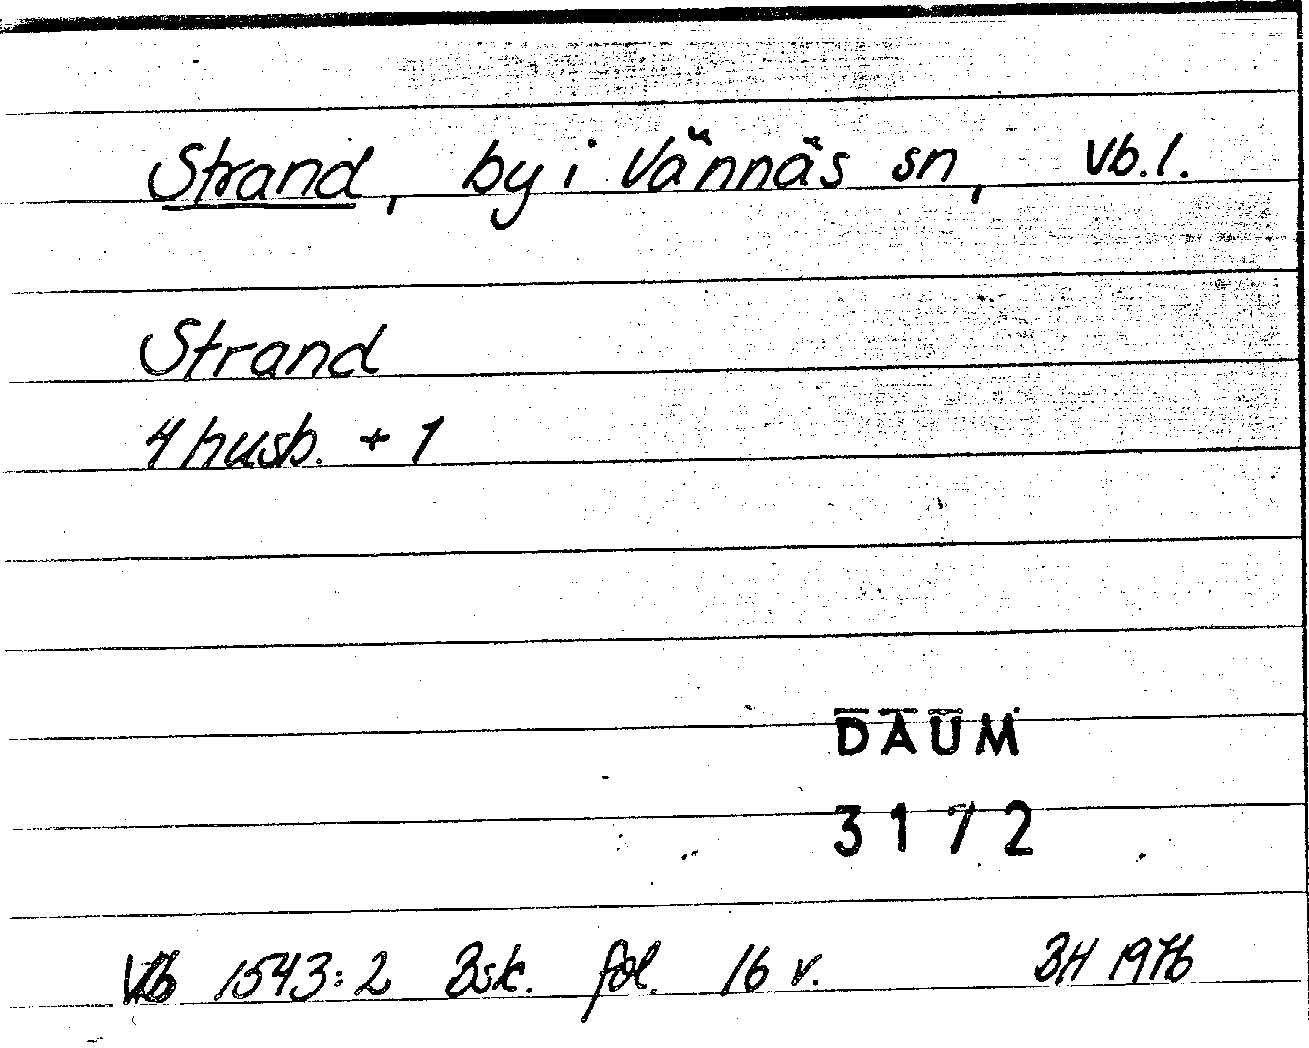 Strand, by i Vännäs sn, Vb.l.
Strand
4 husb. + 1
DAUM
3172
Vb 1543:2 Bsk. fol. 16 v. BH 1976